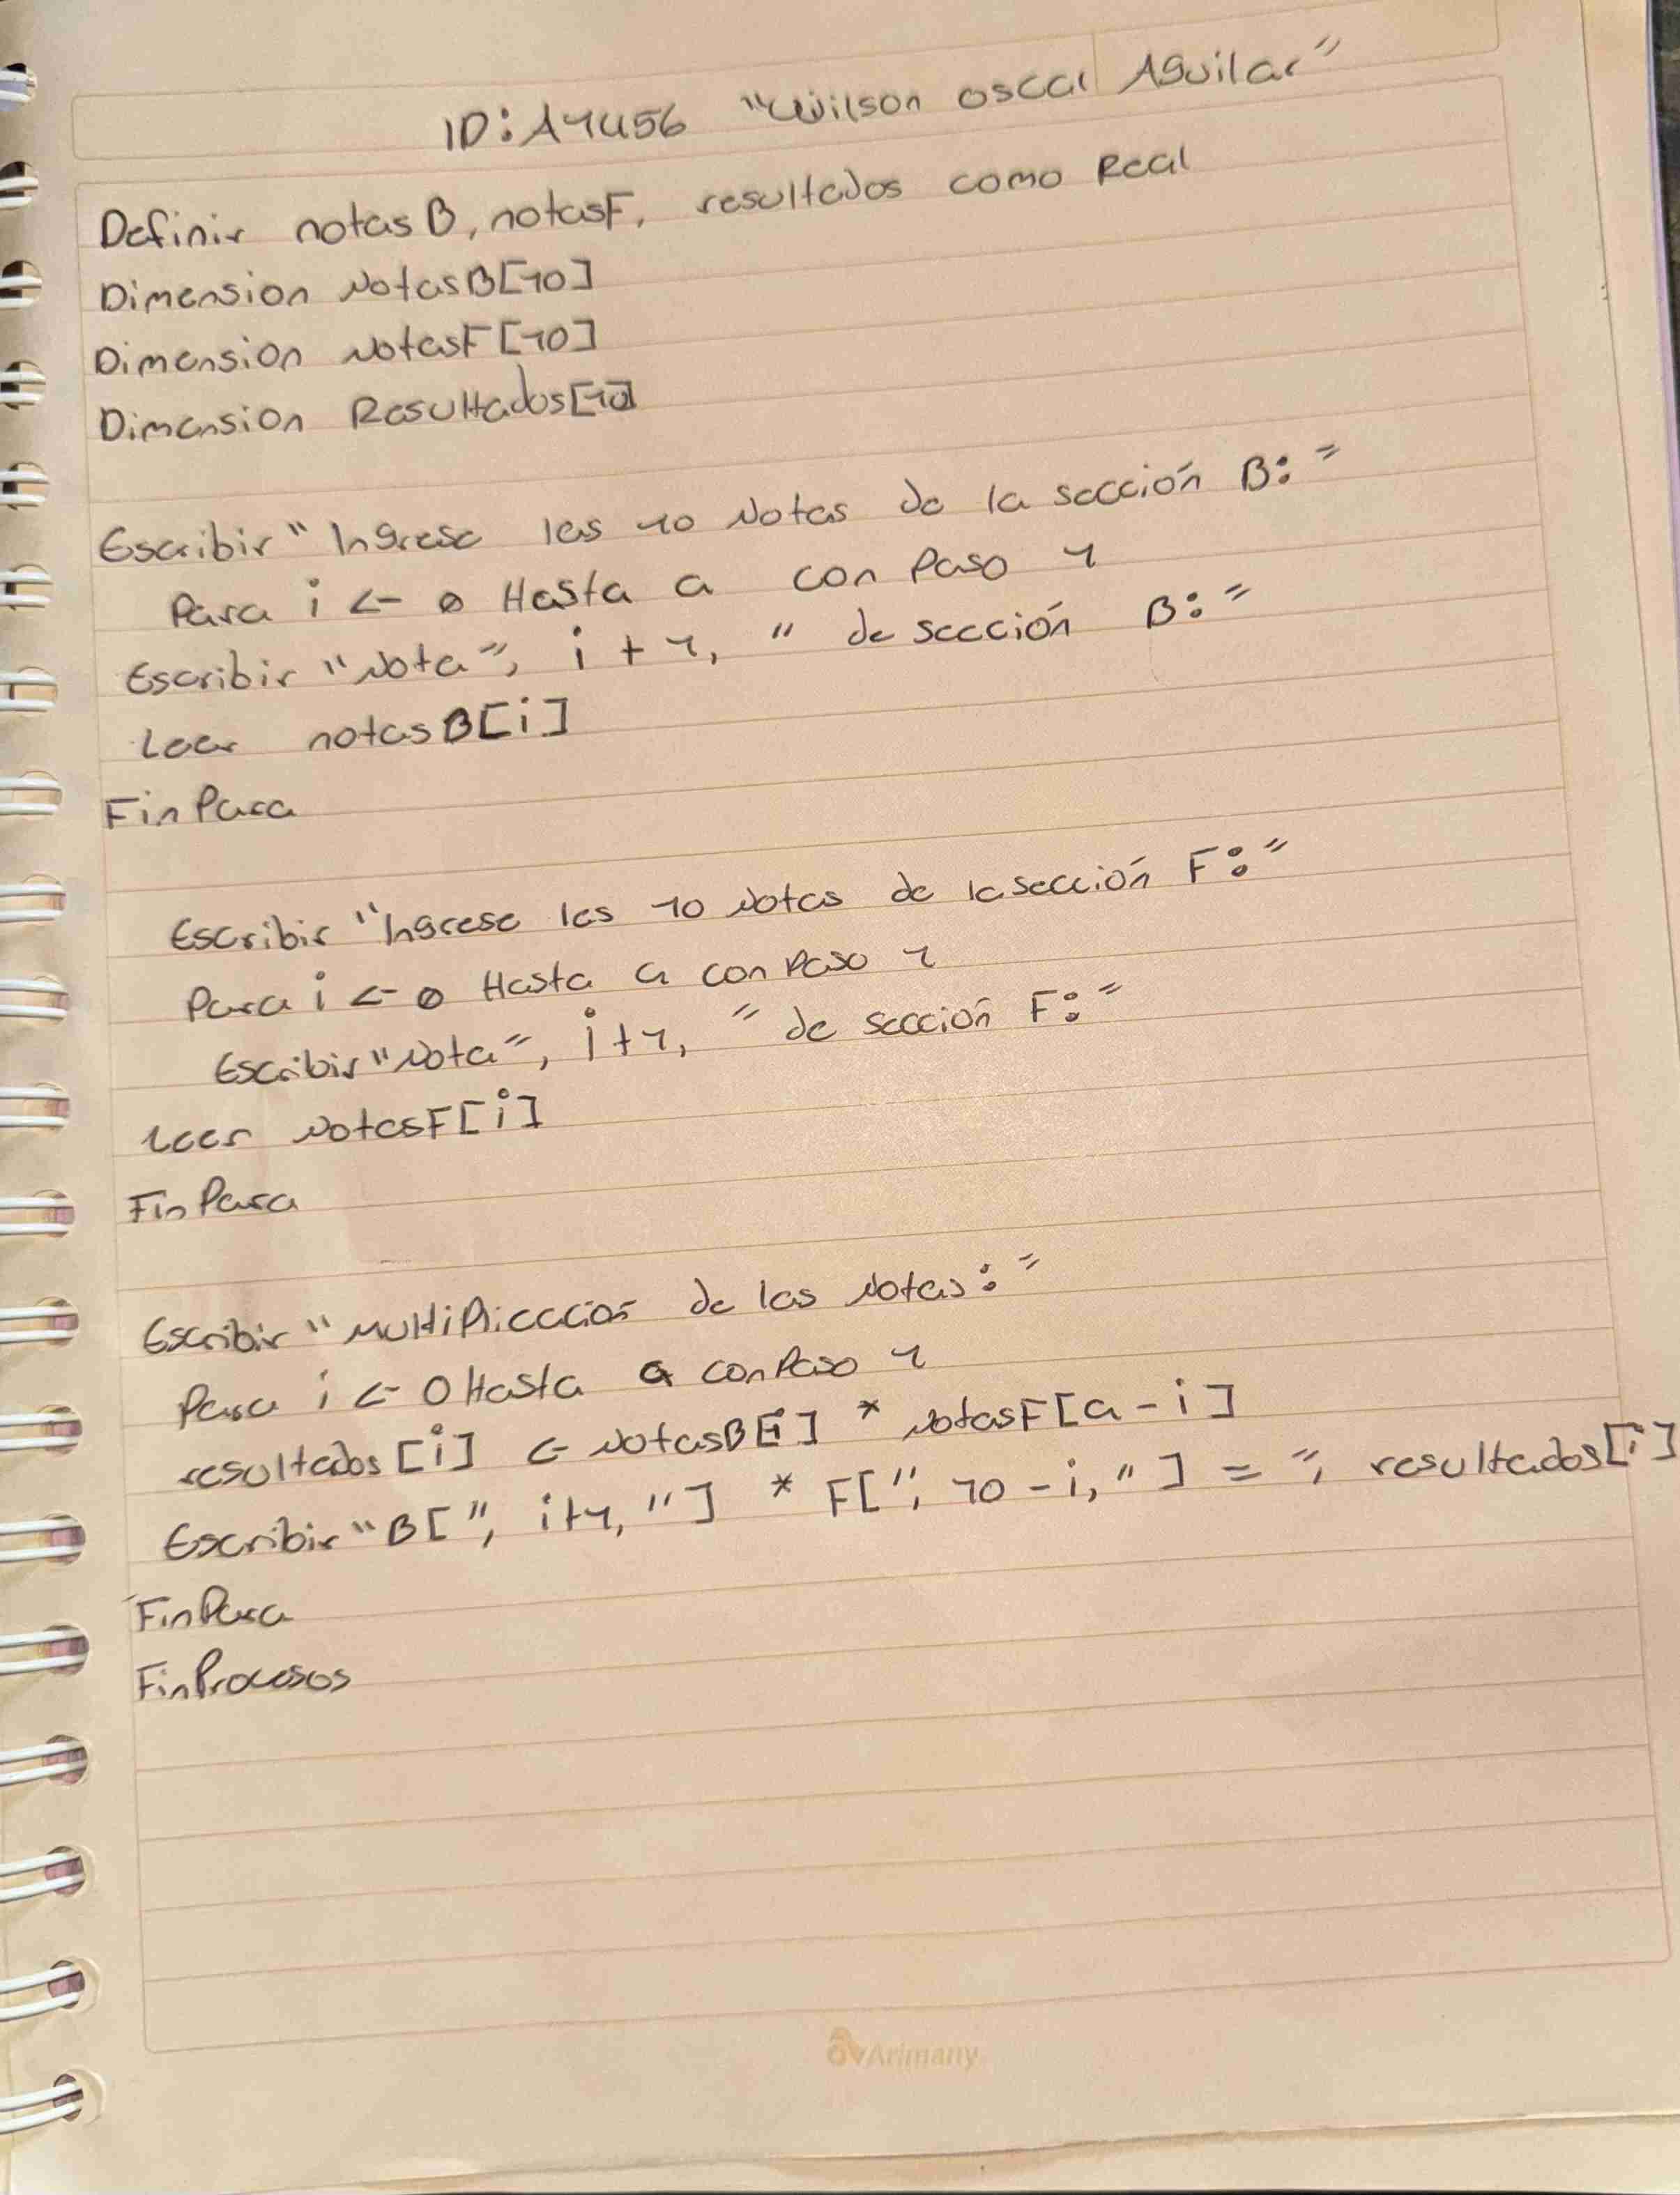 ID: A1456 "Wilson Oscar Aguilar"
Definir notasB, notasF, resultados como Real
Dimension NotasB[10]
Dimension NotasF[10]
Dimension Resultados[10]
Escribir "Ingrese las 10 Notas de la sección B:"
Para i <- 0 Hasta 9 con Paso 1
Escribir "Nota", i + 1, " de sección B:"
Leer notasB[i]
FinPara
Escribir "Ingrese las 10 Notas de la sección F:"
Para i <- 0 Hasta 9 con Paso 1
Escribir "Nota", i+1, " de sección F:"
Leer NotasF[i]
FinPara
Escribir "Multiplicación de las Notas:"
Para i <- 0 Hasta 9 con Paso 1
resultados[i] <- NotasB[i] * NotasF[9 - i]
Escribir "B[", i+1, "] * F[", 10 - i, "] = ", resultados[i]
FinPara
FinProcesos
Arimany